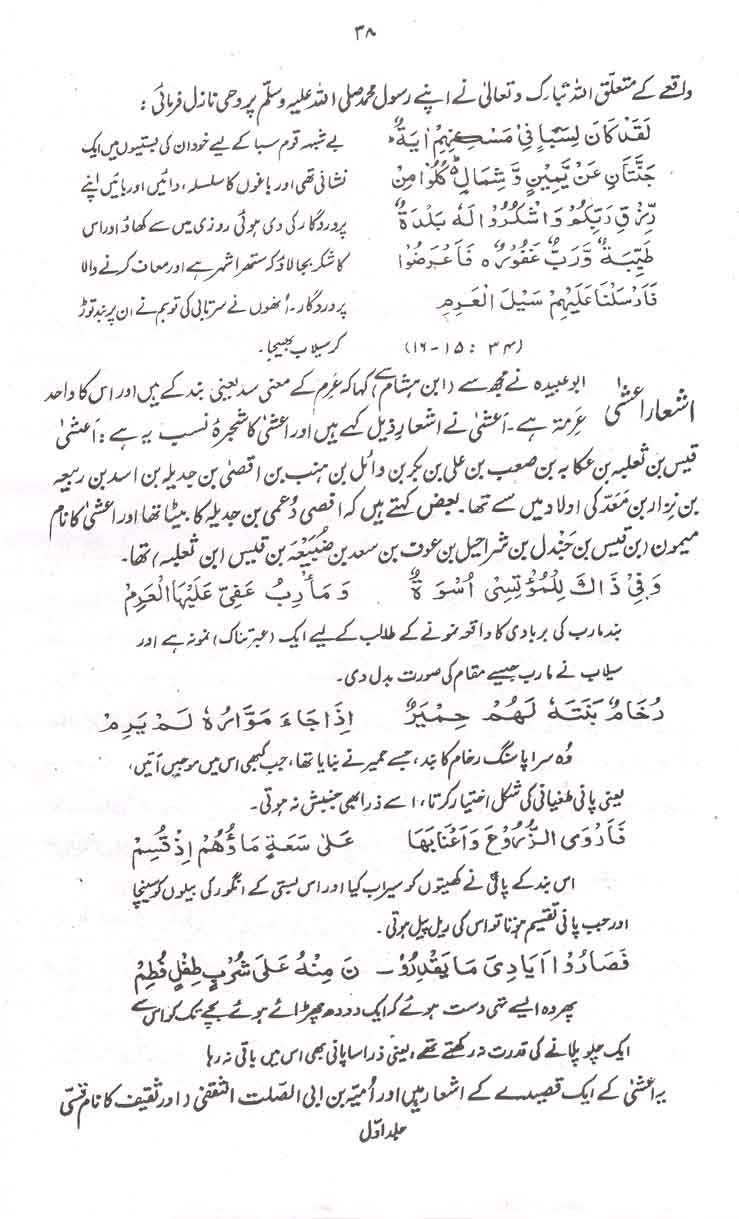 ۳۸
واقعے کے متعلق اللہ تبارک و تعالیٰ نے اپنے رسول محمد صلی اللہ علیہ وسلم پر وحی نازل فرمائی :
لَقَدْ كَانَ لِسَبَاٍ فِيْ مَسْكَنِهِمْ اٰيَةٌ
جَنَّتَانِ عَنْ يَّمِيْنٍ وَّشِمَالٍ كُلُوْا مِنْ
رِّزْقِ رَبِّكُمْ وَاشْكُرُوْا لَهٗ بَلْدَةٌ
طَيِّبَةٌ وَّرَبٌّ غَفُوْرٌ ه فَاَعْرَضُوْا
فَاَرْسَلْنَا عَلَيْهِمْ سَيْلَ الْعَرِمِ
(۳۴ : ۱۵-۱۶)
بے شبہہ قوم سبا کے لیے خود ان کی بستیوں میں ایک
نشانی تھی اور باغوں کا سلسلہ، دائیں اور بائیں اپنے
پروردگار کی دی ہوئی روزی میں سے کھاؤ اور اس
کا شکر بجا لاؤ کہ ستھرا شہر ہے اور معاف کرنے والا
پروردگار۔ اُنھوں نے سرتابی کی تو ہم نے ان پر بند توڑ
کر سیلاب بھیجا۔
اشعار اعشیٰ
ابو عبیدہ نے مجھ سے (ابن ہشام سے) کہا کہ عَرِم کے معنی سد یعنی بند کے ہیں اور اس کا واحد
عَرِمۃ ہے۔ اَعشیٰ نے اشعارِ ذیل کہے ہیں اور اعشیٰ کا شجرۂ نسب یہ ہے : اَعشیٰ
قیس بن ثعلبہ بن عکابہ بن صعب بن علی بن بکر بن وائل بن ہنب بن اقصیٰ بن جدیلہ بن اسد بن ربیعہ
بن نزار بن مَعَدّ کی اولاد میں سے تھا۔ بعض کہتے ہیں کہ افصی دُعمی بن جدیلہ کا بیٹا تھا اور اعشیٰ کا نام
میمون (بن قیس بن جَندل بن شراحیل بن عوف بن سعد بن ضُبَیْعَہ بن قیس (بن ثعلبہ) تھا۔
وَفِيْ ذَاكَ لِلْمُؤْتَسِيْ اُسْوَةٌ وَمَأْرِبُ عَفّٰى عَلَيْهَا الْعَرِمْ
بند مارب کی بربادی کا واقعہ نمونے کے طالب کے لیے ایک (عبرتناک) نمونہ ہے اور
سیلاب نے مارب جیسے مقام کی صورت بدل دی۔
رُخَامٌ بَنَتْهُ لَهُمْ حِمْيَرٌ اِذَا جَاءَ مَوَّارُهٗ لَمْ يَرِمْ
وُہ سراپا سنگ رخام کا بند، جسے حمیر نے بنایا تھا، جب کبھی اس میں موجیں آتیں،
یعنی پانی طغیانی کی شکل اختیار کرتا، اسے ذرا بھی جنبش نہ ہوتی۔
فَاَرْوَى الزُّرُوْعَ وَاَعْنَابَهَا عَلٰى سَعَةٍ مَاؤُهُمْ اِذْ قُسِمْ
اس بند کے پانی نے کھیتوں کو سیراب کیا اور اس بستی کے انگور کی بیلوں کو سینچا
اور جب پانی تقسیم ہوتا تو اس کی ریل پیل ہوتی۔
فَصَارُوْا اَيَادِيَ مَا يَقْدِرُوْ۔ نَ مِنْهُ عَلٰى شُرْبِ طِفْلٍ فُطِمْ
پھر وہ ایسے تہی دست ہوئے کہ ایک دودھ چھڑائے ہوئے بچے تک کو اس سے
ایک چلو پلانے کی قدرت نہ رکھتے تھے، یعنی ذرا سا پانی بھی اس میں باقی نہ رہا
یہ اعشیٰ کے ایک قصیدے کے اشعار ہیں اور اُمیّہ بن ابی الصّلت الثقفی (اور ثقیف کا نام قسّی
جلد اوّل